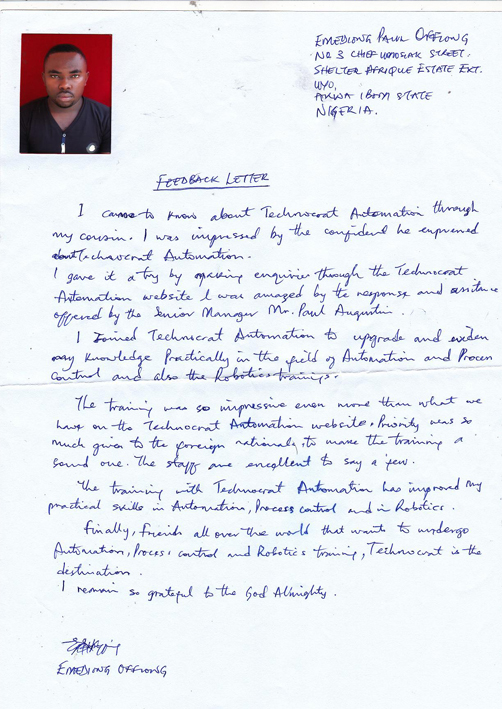 EMEDIONG PAUL OFFIONG
No 3 CHIEF UMOSAK STREET.
SHELTER AFRIQUE ESTATE EXT.
UYO,
AKWA IBOM STATE
NIGERIA.
FEEDBACK LETTER
I came to know about Technocrat Automation through
my cousin. I was impressed by the confident he expressed
about Technocrat Automation.
I gave it a try by making enquiries through the Technocrat
Automation website I was amazed by the response and assistance
offered by the Senior Manager Mr. Paul Augustin.
I Joined Technocrat Automation to upgrade and widen
my knowledge Practically in the field of Automation and Process
Control and also the Robotics trainings.
The training was so impressive even more than what we
have on the Technocrat Automation website. Priority was so
much given to the foreign nationals, to make the training a
sound one. The staffs are excellent to say a few.
The training with Technocrat Automation has improved my
practical skills in Automation, Process control and in Robotics.
Finally, Friends all over the world that wants to undergo
Automation, Process control and Robotics training, Technocrat is the
destination.
I remain so grateful to the God Almighty.
EMEDIONG OFFIONG